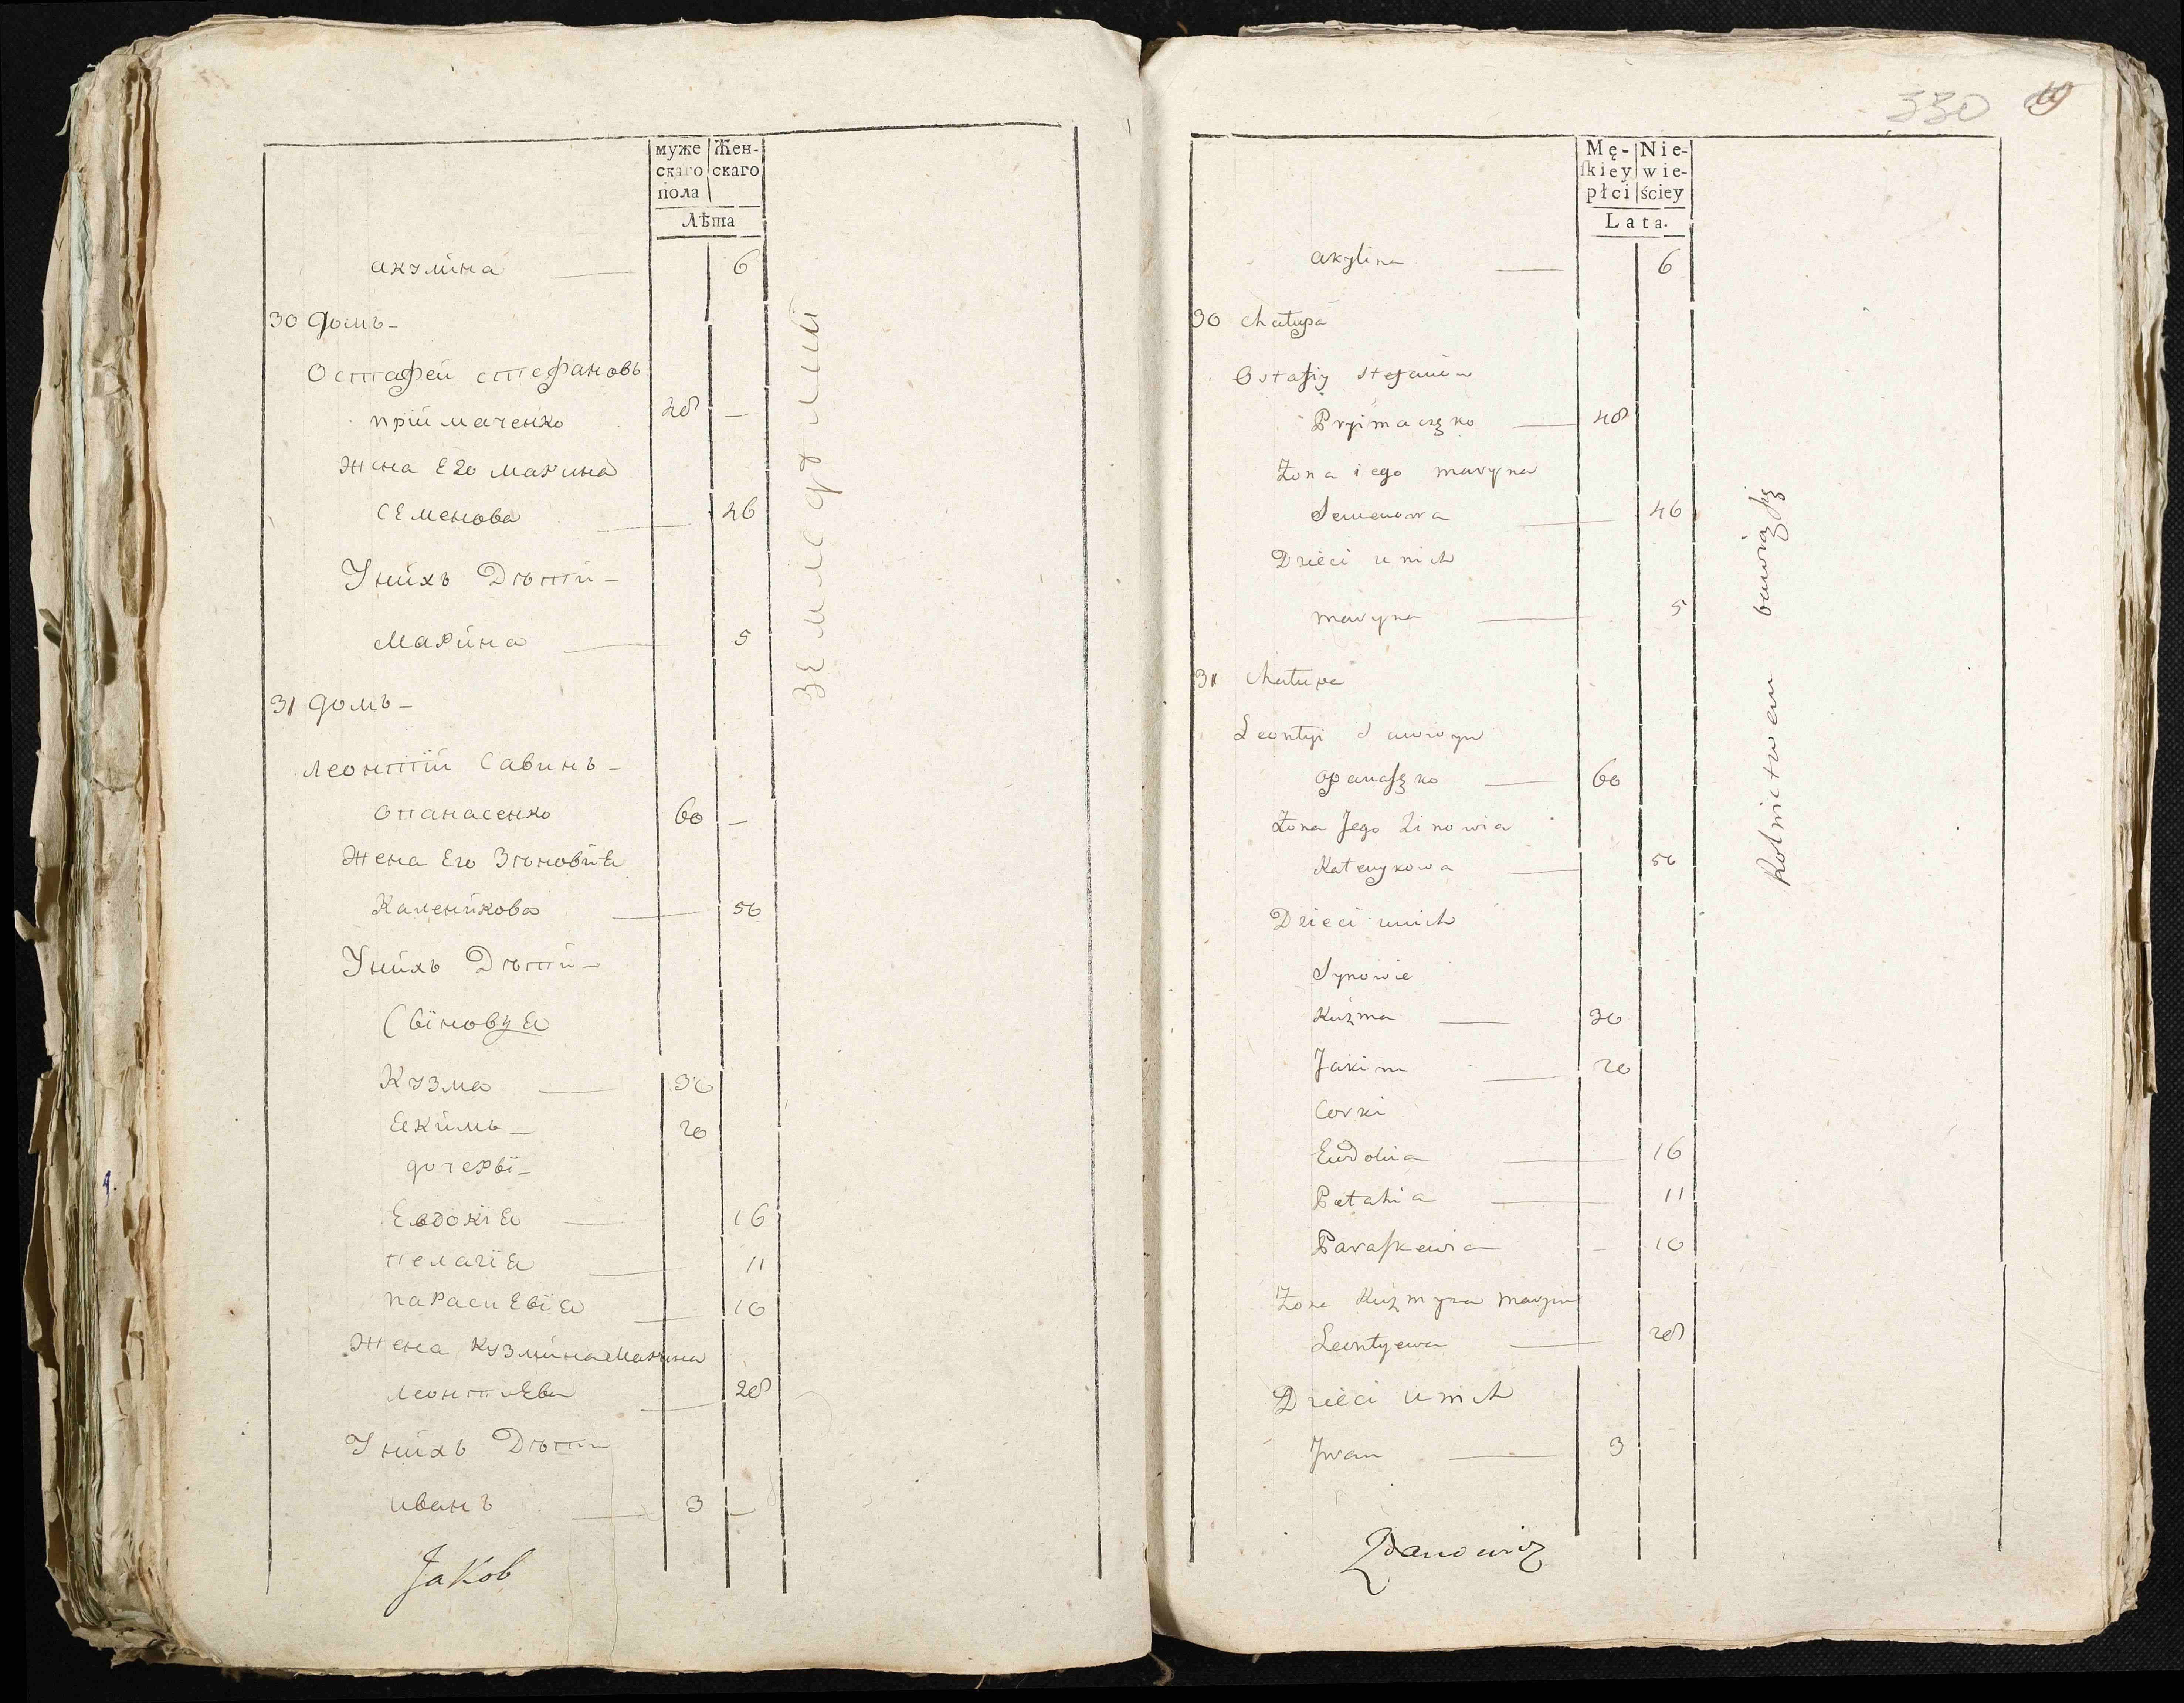 муже Жен-
скаго скаго
пола
Лѣта
акулина 6
30 домъ
Остафей стефановъ
приймаченко 48 —
Жена Его Марина
СЕменова 46
Унихъ Дѣти
Марина 5
31 домъ
леонтiй Савинъ
опанасенко 60 —
Жена Его Зѣновия
Каленикова 56
Унихъ Дѣти
Сiновуя
Кузма 30
Якимъ 20
дочерьi
Евдокiя 16
пелагiя 11
параскЕвiя 10
Жена Кузмина Марина
леонтьЕва 28
Унихъ Дѣти
иванъ 3 —
Jakob
330 19
Mę- Nie-
ſkiey wie-
płci ściey
Lata.
akylina 6
30 chatupa
Ostafiy stefanów
Pryimaczęko 48
Żona iego maryna
Semenowa 46
Dzieci u nich
maryna 5
31 chatupa
Leontyi Sawwyn
opanaſęko 60
Żona Jego Zinowia
Kalenykowa 56
Dzieci unich
Synowie
Kuźma 30
Jakim 20
Corki
Eudokia 16
Pelahia 11
Paraſkewia 10
Żona Kuźmyna maryna
Leontyewa 28
Dzieci unich
Jwan 3
Zdanowicz
Rolnictwem bawią się